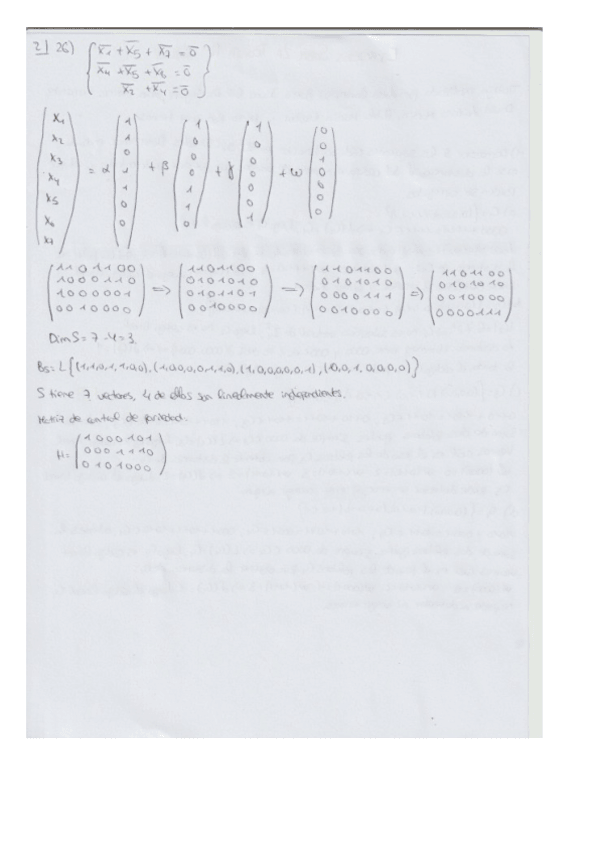 2) 26) { x̄1 + x̄5 + x̄7 = 0̄
x̄4 + x̄5 + x̄6 = 0̄
x̄2 + x̄4 = 0̄ }
(x1 x2 x3 x4 x5 x6 x7) = α (1 1 0 1 1 0 0) + β (1 0 0 0 1 1 0) + γ (1 0 0 0 0 0 1) + ω (0 0 1 0 0 0 0)
(1101100 1000110 1000001 0010000) => (1101100 0101010 0101101 0010000) => (1101100 0101010 0000111 0010000) => (1101100 0101010 0010000 0000111)
Dim S = 7 - 4 = 3
Bs = L {(1,1,0,1,1,0,0), (1,0,0,0,1,1,0), (1,0,0,0,0,0,1), (0,0,1,0,0,0,0)}
S tiene 7 vectores, 4 de ellos son linealmente independientes.
Matriz de control de paridad.
H = (1000101
0001110
0101000)